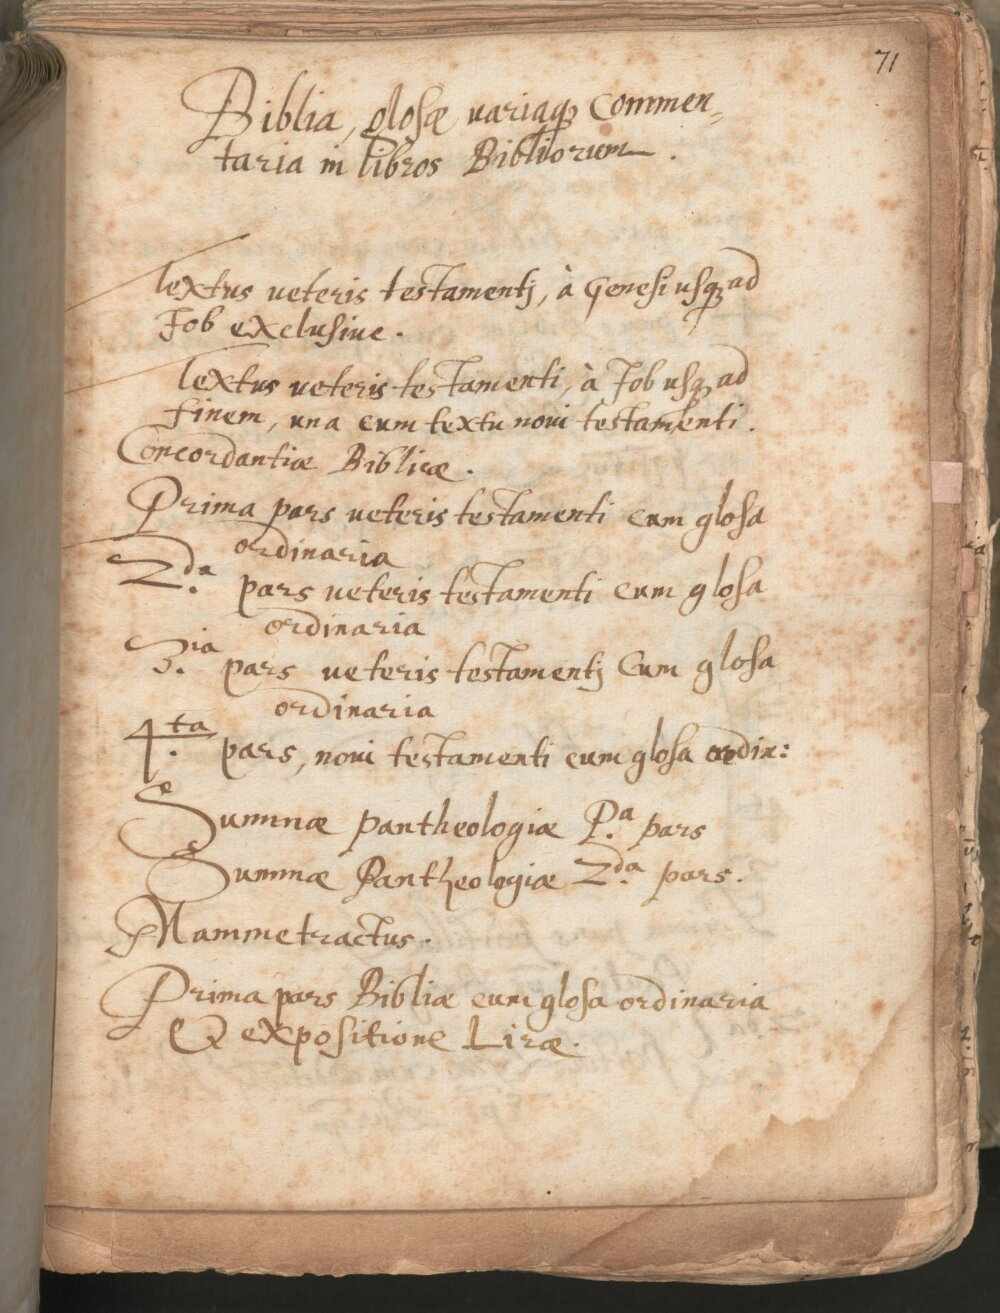 71
Biblia, glosæ uariaq; Commen„
taria in libros Bibliorum.
Textus ueteris testamentj, à Genesi usq; ad
Job exclusiue.
Textus ueteris testamenti, à Job usq; ad
finem, una cum textu noui testamenti.
Concordantiæ Bibliæ.
Prima pars ueteris testamenti cum glosa
ordinaria
2.da pars ueteris testamenti cum glosa
ordinaria
3.ia pars ueteris testamentj Cum glosa
ordinaria
4.ta pars, noui testamenti cum glosa ordin:
Summæ pantheologiæ P.a pars
Summæ Pantheologiæ 2.da pars.
Mammetractus.
Prima pars Bibliæ cum glosa ordinaria
& expositione Liræ.